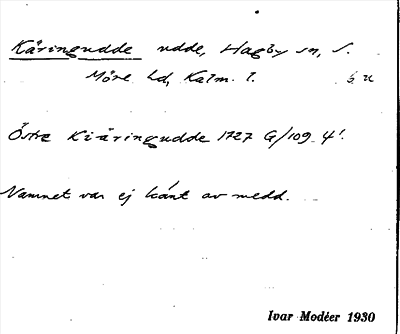 Käringudde udde, Hagby sn, S.
Möre hd, Kalm. l. b u
Östre Kiäringudde 1727 G/109-4'.
Namnet var ej känt av medd.
Ivar Modéer 1930